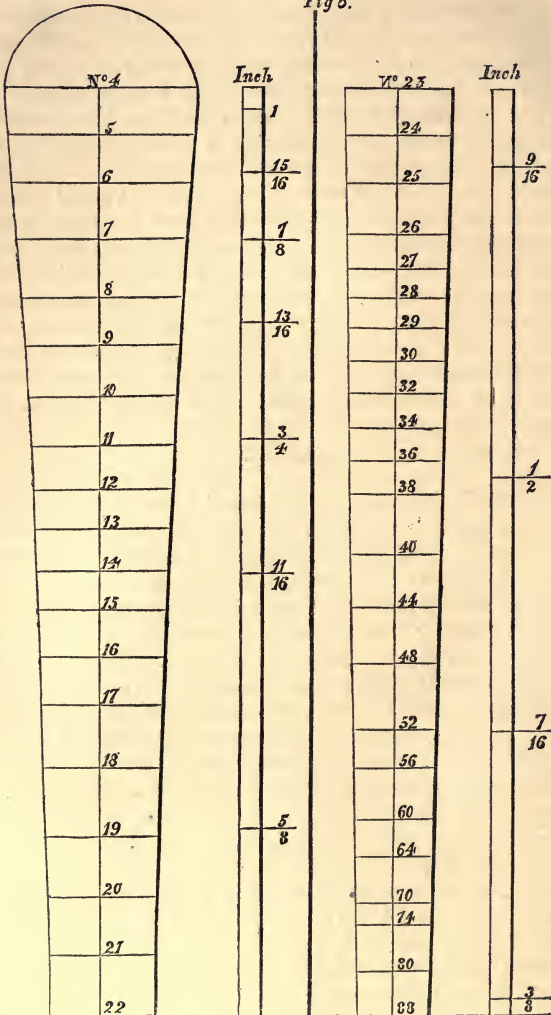 Fig 5.
Nº 4
5
6
7
8
9
10
11
12
13
14
15
16
17
18
19
20
21
22
Inch
1
15
16
7
8
13
16
3
4
11
16
5
8
Nº 23
24
25
26
27
28
29
30
32
34
36
38
40
44
48
52
56
60
64
70
74
80
88
Inch
9
16
1
2
7
16
3
8